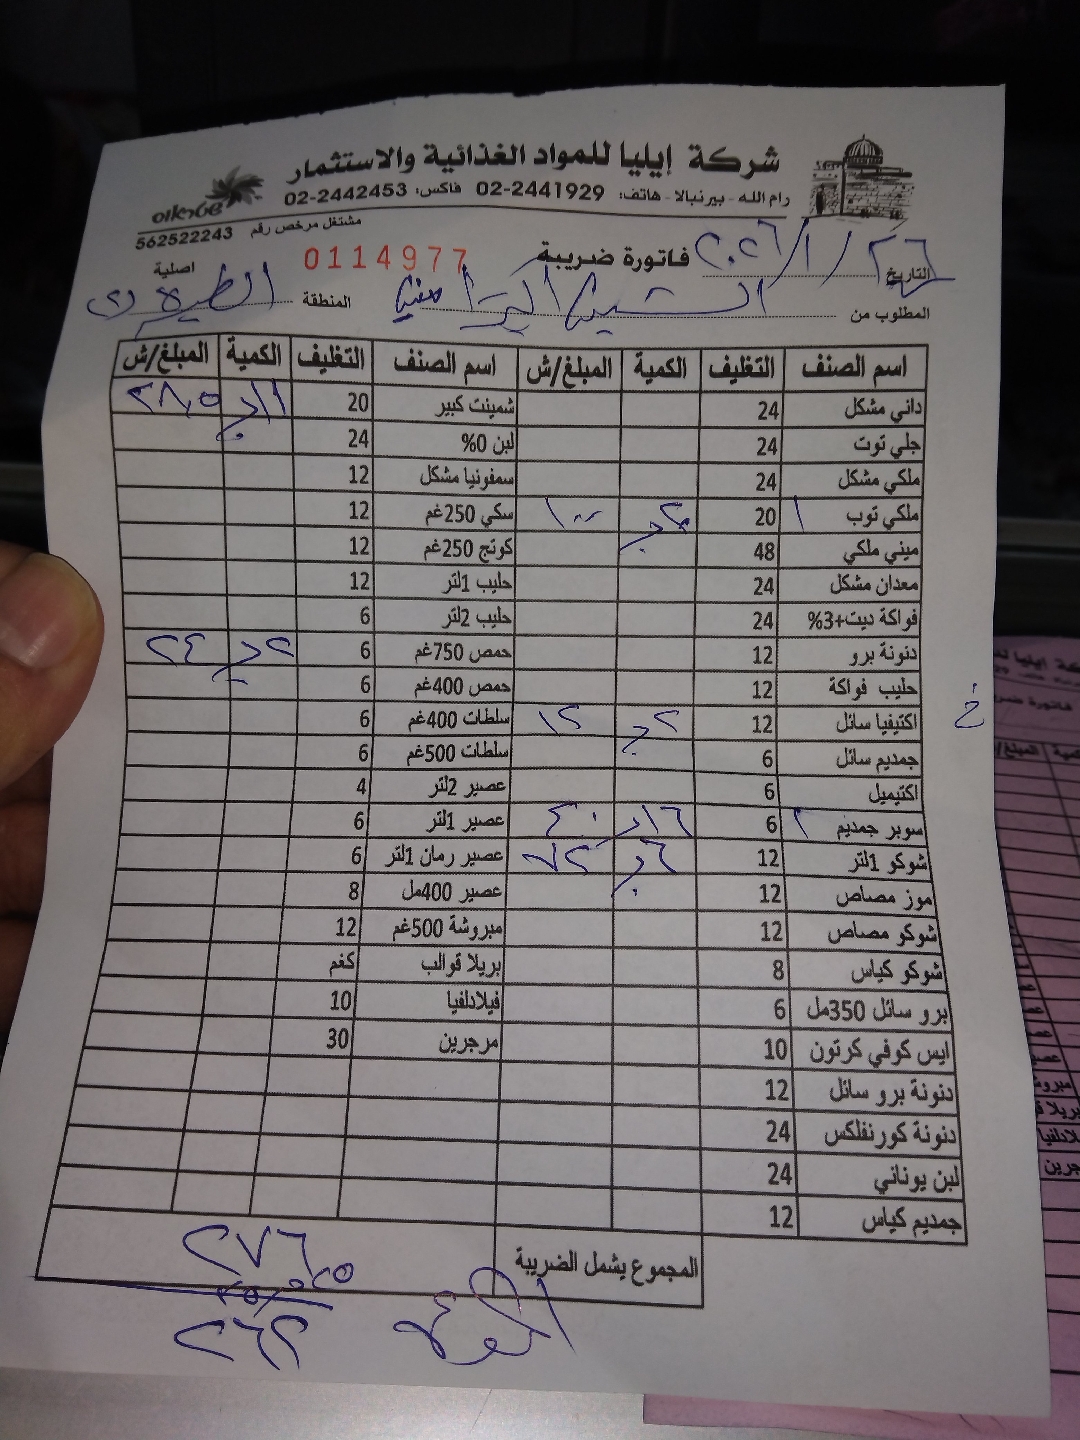 شركة إيليا للمواد الغذائية والاستثمار
رام الله - بيرنبالا - هاتف: 02-2441929 فاكس: 02-2442453
שטראוס
مشتغل مرخص رقم 562522243
التاريخ ٢٠٢٦/١/٢٦ فاتورة ضريبة 0114977 اصلية
المطلوب من المنطقة الطيرة
اسم الصنف التغليف الكمية المبلغ/ش اسم الصنف التغليف الكمية المبلغ/ش
داني مشكل 24 شمينت كبير 20 ٢٨,٥
جلي توت 24 لبن 0% 24
ملكي مشكل 24 سمفونيا مشكل 12
ملكي توب ١ 20 ١٠٠ سكي 250غم 12
ميني ملكي 48 كوتج 250غم 12
معدان مشكل 24 حليب 1لتر 12
فواكة ديت+3% 24 حليب 2لتر 6
دنونة برو 12 حمص 750غم 6 ٢ج ٢٤
حليب فواكة 12 حمص 400غم 6
اكتيفيا سائل 12 ٢ج ١٢ سلطات 400غم 6
جمديم سائل 6 سلطات 500غم 6
اكتيميل 6 عصير 2لتر 4
سوبر جمديم 6 ٤٠ عصير 1لتر 6
شوكو 1لتر 12 ٦ج ٧٢ عصير رمان 1لتر 6
موز مصاص 12 عصير 400مل 8
شوكو مصاص 12 مبروشة 500غم 12
شوكو كياس 8 بريلا قوالب كغم
برو سائل 350مل 6 فيلادلفيا 10
ايس كوفي كرتون 10 مرجرين 30
دنونة برو سائل 12
دنونة كورنفلكس 24
لبن يوناني 24
جمديم كياس 12
المجموع يشمل الضريبة ٢٧٦,٥
٢٦٢